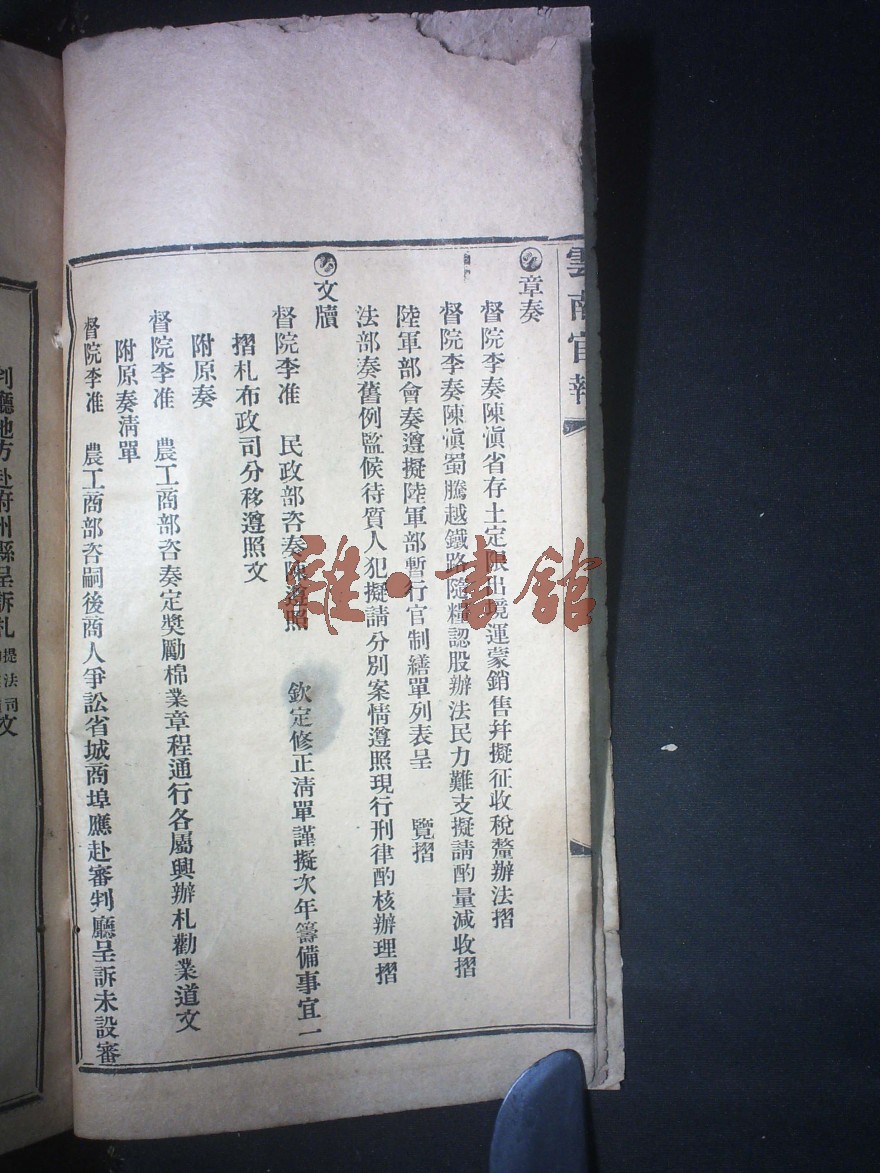 雲南官報
章奏
督院李奏陳滇省存土定限出境運蒙銷售幷擬征收稅釐辦法摺
督院李奏陳滇蜀騰越鐵路隨糧認股辦法民力難支擬請酌量減收摺
陸軍部會奏遵擬陸軍部暫行官制繕單列表呈 覽摺
法部奏舊例監候待質人犯擬請分別案情遵照現行刑律酌核辦理摺
文牘
督院李准 民政部咨奏陳遵照 欽定修正淸單謹擬次年籌備事宜一
摺札布政司分移遵照文
附原奏
督院李准 農工商部咨奏定奬勵棉業章程通行各屬興辦札勸業道文
附原奏淸單
督院李准 農工商部咨嗣後商人爭訟省城商埠應赴審判廳呈訴未設審
判廳地方赴府州縣呈訴札提法司文
雜·書館